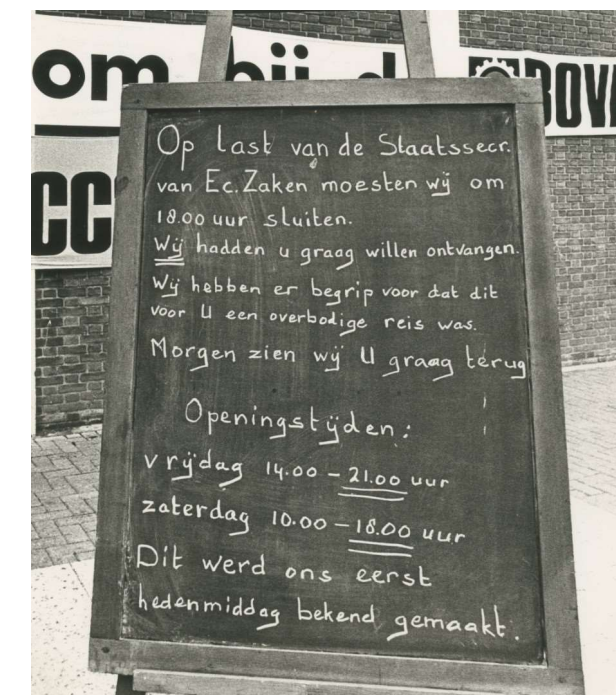 om bij d
BOV
CC
Op last van de Staatssecr.
van Ec. Zaken moesten wij om
18.00 uur sluiten.
Wij hadden u graag willen ontvangen.
Wij hebben er begrip voor dat dit
voor U een overbodige reis was.
Morgen zien wij U graag terug
Openingstijden:
vrijdag 14.00 - 21.00 uur
zaterdag 10.00 - 18.00 uur
Dit werd ons eerst
hedenmiddag bekend gemaakt.